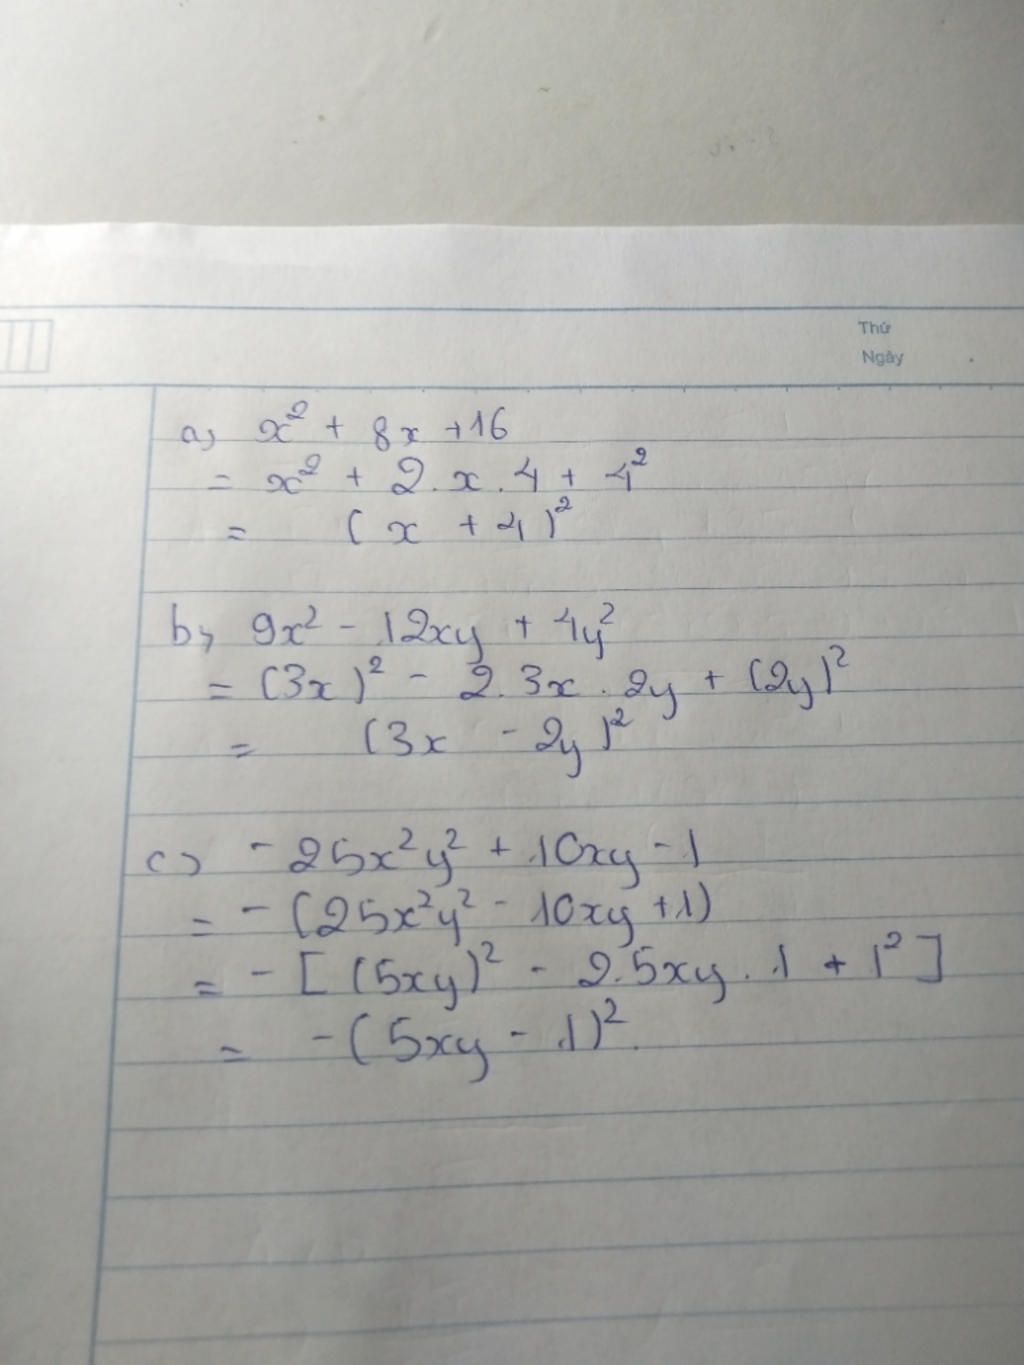 Thứ
Ngày
a, x² + 8x + 16
= x² + 2.x.4 + 4²
= (x + 4)²
b, 9x² - 12xy + 4y²
= (3x)² - 2.3x.2y + (2y)²
= (3x - 2y)²
c) - 25x²y² + 10xy - 1
= - (25x²y² - 10xy + 1)
= - [(5xy)² - 2.5xy.1 + 1²]
= -(5xy - 1)².